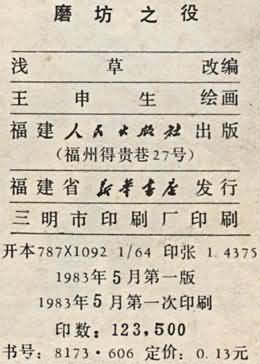 磨坊之役
浅草 改编
王申生 绘画
福建人民出版社出版
(福州得贵巷27号)
福建省新华书店发行
三明市印刷厂印刷
开本787X1092 1/64 印张 1.4375
1983年5月第一版
1983年5月第一次印刷
印数: 123,500
书号: 8173·606 定价: 0.13元